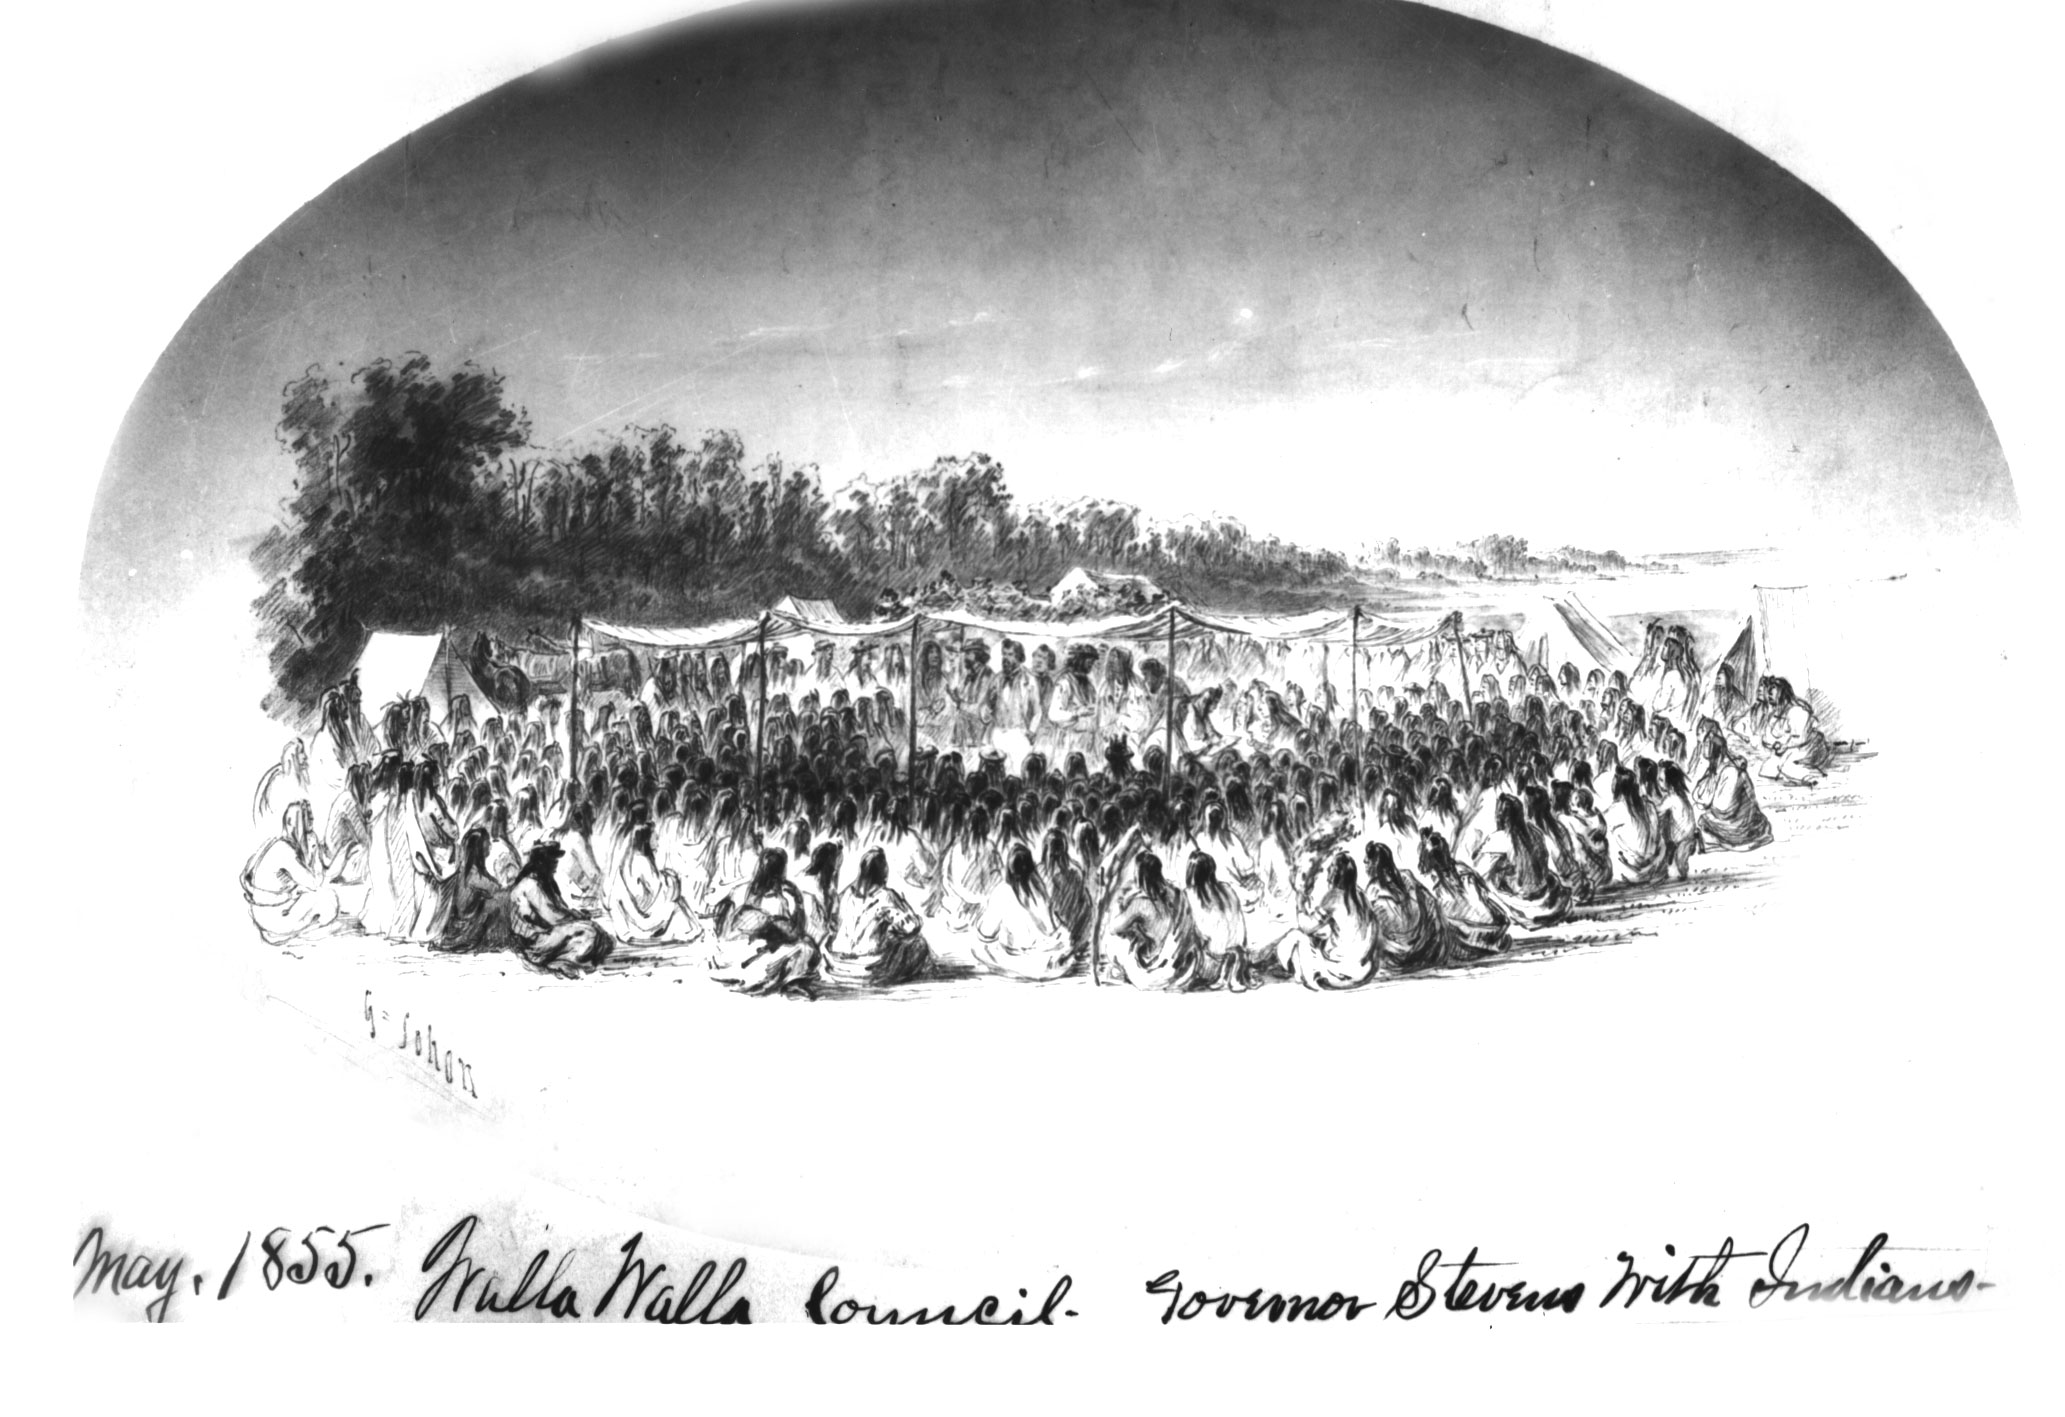 G=Sohon
May. 1855. Walla Walla Council- Governor Stevens With Indians-